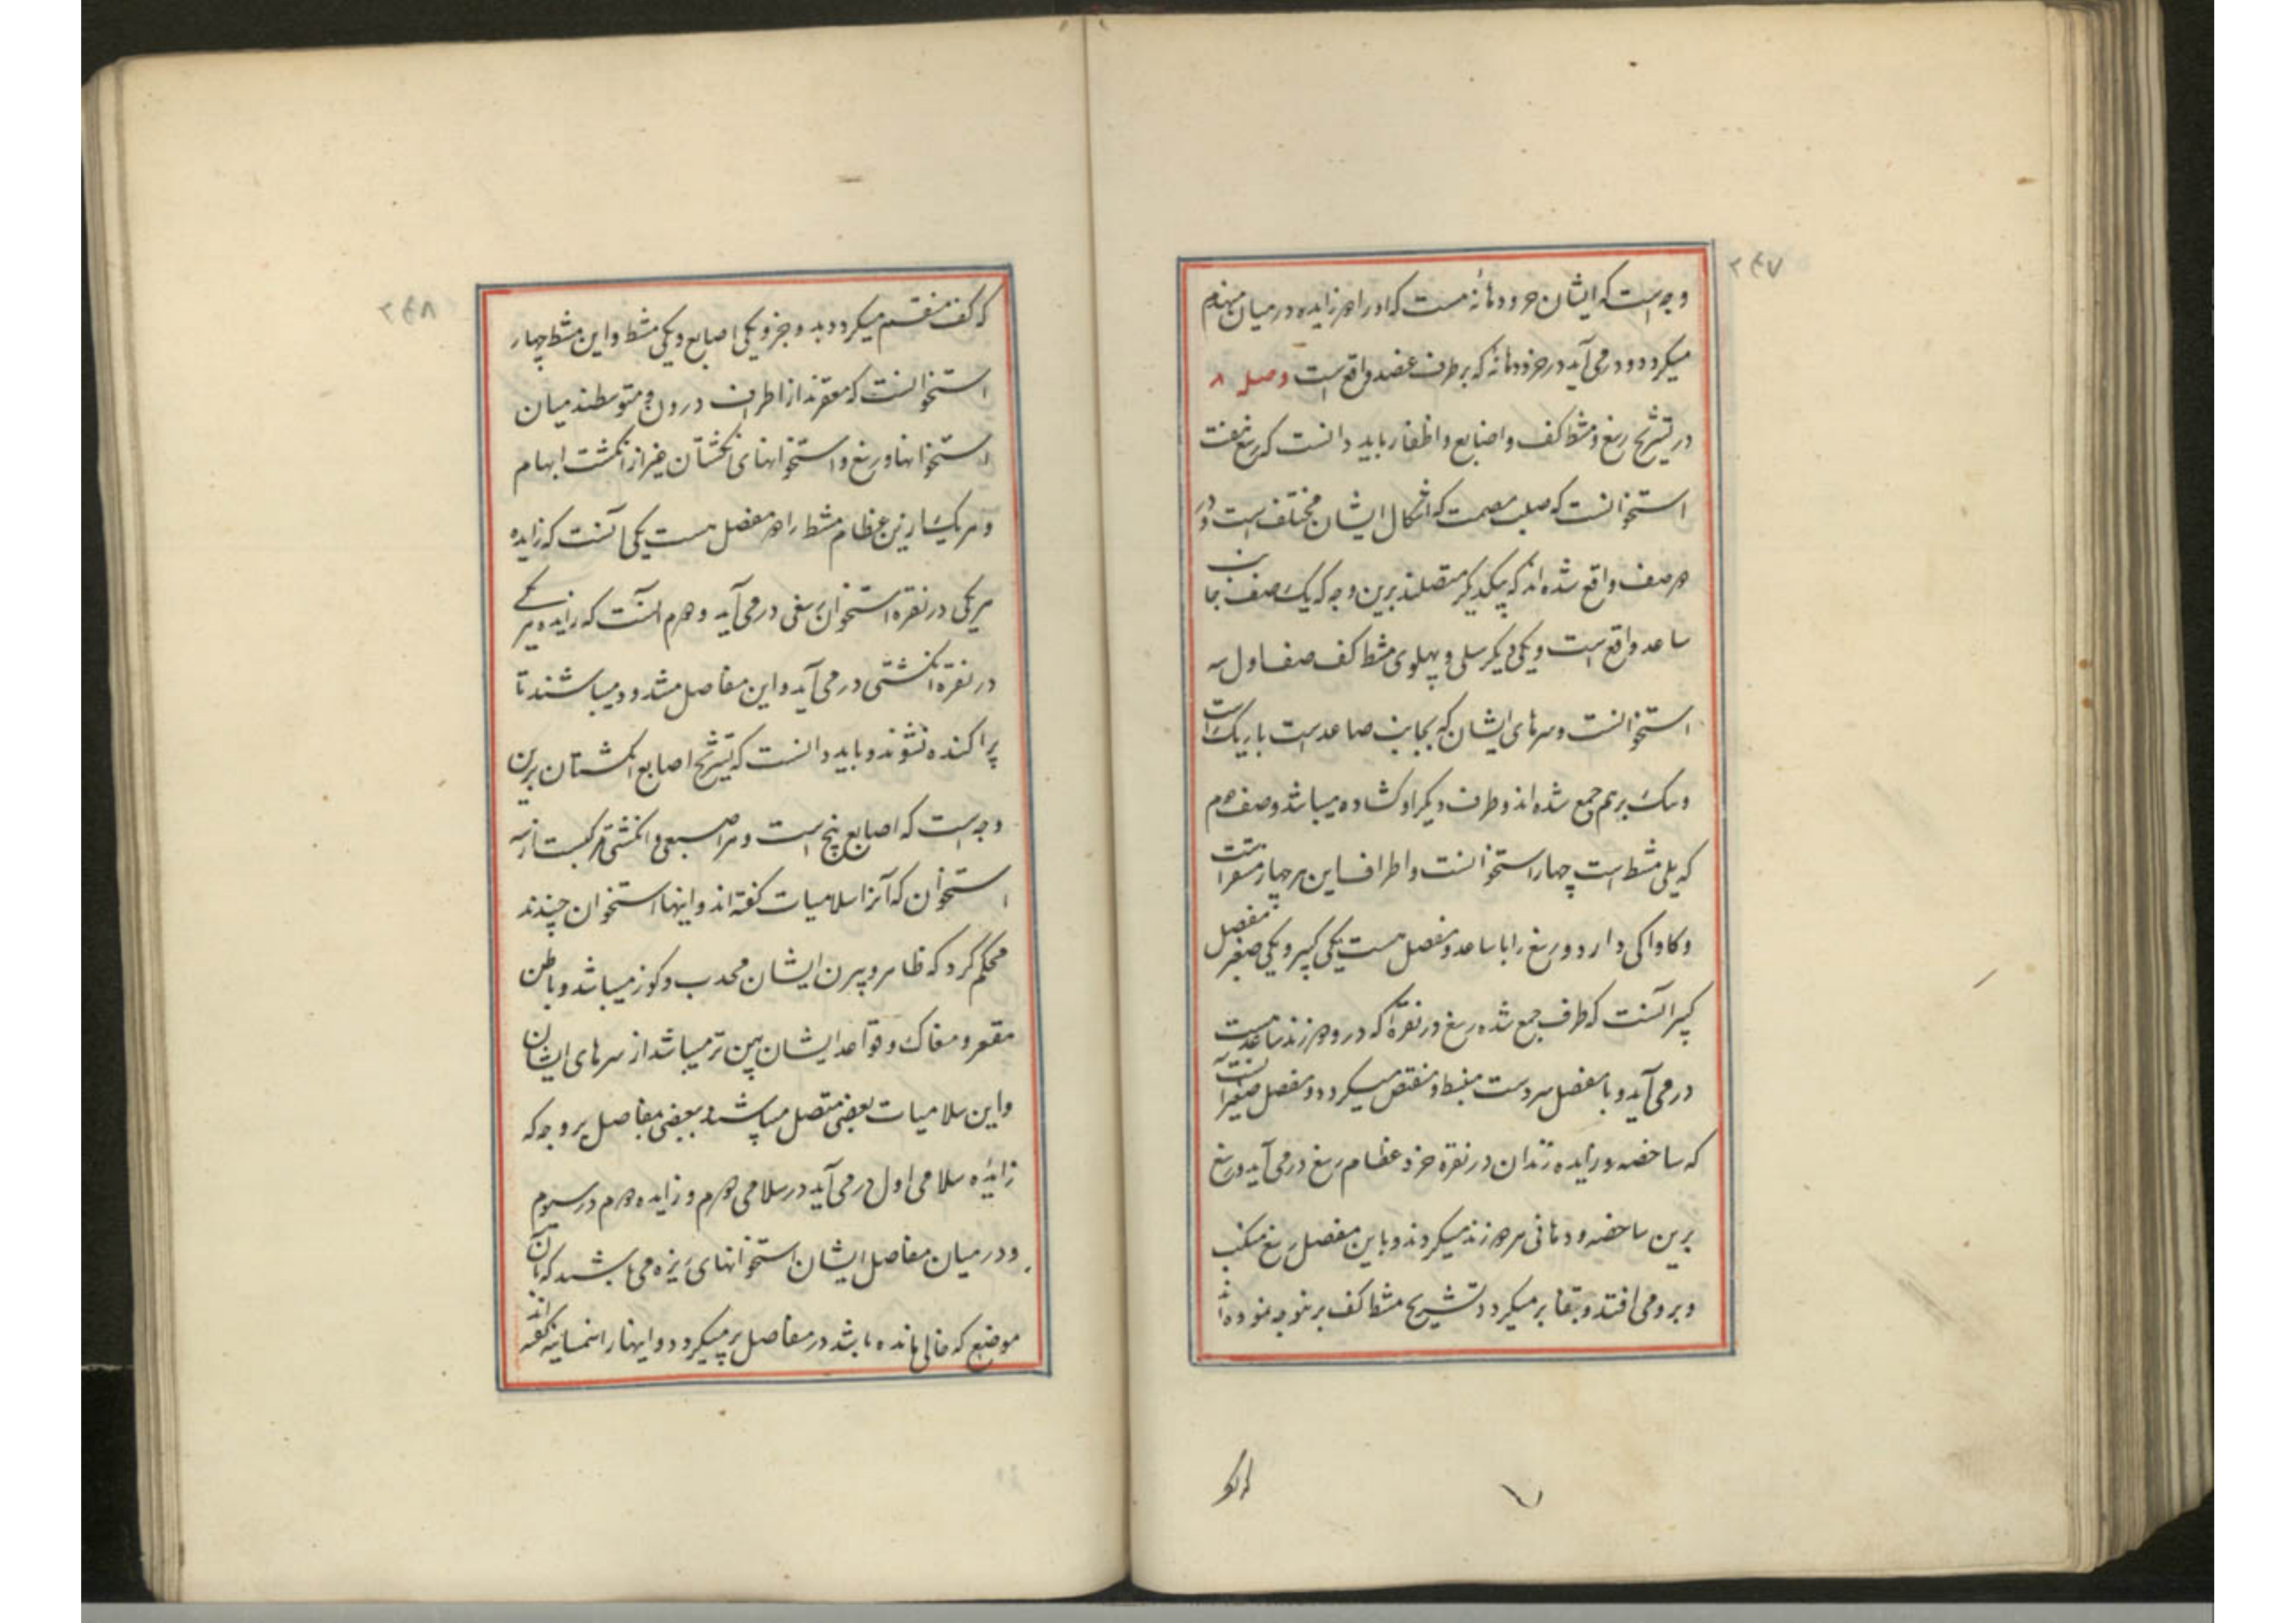 ۲۴۷
وجه است که ایشان خرد و دهانه هست که او را هر زایده در میان مهندم
میکردد و در می آید در خرد دهانه که بر طرف عضد واقع است وصل ۸
در تشریح رسغ و مشط کف و اصابع و اظفار باید دانست که رسغ هفت
استخوانست که صلب مصمت که اشکال ایشان مختلف است و در
هر صف واقع شده اند که بیکدیگر متصلند برین وجه که یک صف بجانب
ساعد واقع است و یکی دیگر سلی و پهلوی مشط کف صف اول سه
استخوانست و سرهای ایشان که بجانب صاعد است باریک است
و تنک بر هم جمع شده اند و طرف دیگر او کشاده میباشد وصف دوم
که یلی مشط است چهار استخوانست و اطراف این هر چهار مقعر است
و کاواکی دارد و رسغ را با ساعد دو مفصل هست یکی کبیر و یکی صغیر مفصل
کبیر آنست که طرف جمع شده رسغ در نقره که در و هر زند ساعد است
در می آید و با مفصل سر دست منبسط و منقبض میکردد و مفصل صغیر آنست
که ساحضه و زایده زندان در نقره خرد عظام رسغ در می آید و رسغ
برین ساحضه و دهانی سر هر زند میکردند و باین مفصل رسغ منکب
و برو می افتد و بقفا بر میکردد و تشریح مشط کف برینوجه نموده اند
که کف
۲۴۸
که کف منقسم میکردد بدو جزو یکی اصابع و یکی مشط و این مشط چهار
استخوانست که مقعرند از اطراف درون و متوسطند میان
استخوانها و رسغ و استخوانهای انکشتان غیر از انکشت ابهام
و هر یک ازین عظام مشط را هر مفصل هست یکی آنست که زایده
هر یکی در نقره استخوان رسغی در می آید و هرم آنست که زایده هر یکے
در نقره انکشتی در می آید و این مفاصل مشدود میباشند تا
پراکنده نشوند و باید دانست که تشریح اصابع انکشتان برین
وجه است که اصابع پنج است و هر اصبعی و انکشتی مرکبست از سه
استخوان که آنرا سلامیات کفته اند و اینها استخوان چندند
محکم کرد که ظاهر و بیرن ایشان محدب و کوز میباشد و باطن
مقعر و مغاک و قواعد ایشان پهن تر میباشد از سرهای ایشان
و این سلامیات بعضی متصل میباشند ببعضی مفاصل بر وجه که
زایده سلامی اول در می آید در سلامی هرم و زایده هرم در سیوم
و در میان مفاصل ایشان استخوانهای ریزه می باشند که بآن
موضع که خالی مانده باشد در مفاصل پر میکردد و اینها را سمسانیه کفته اند